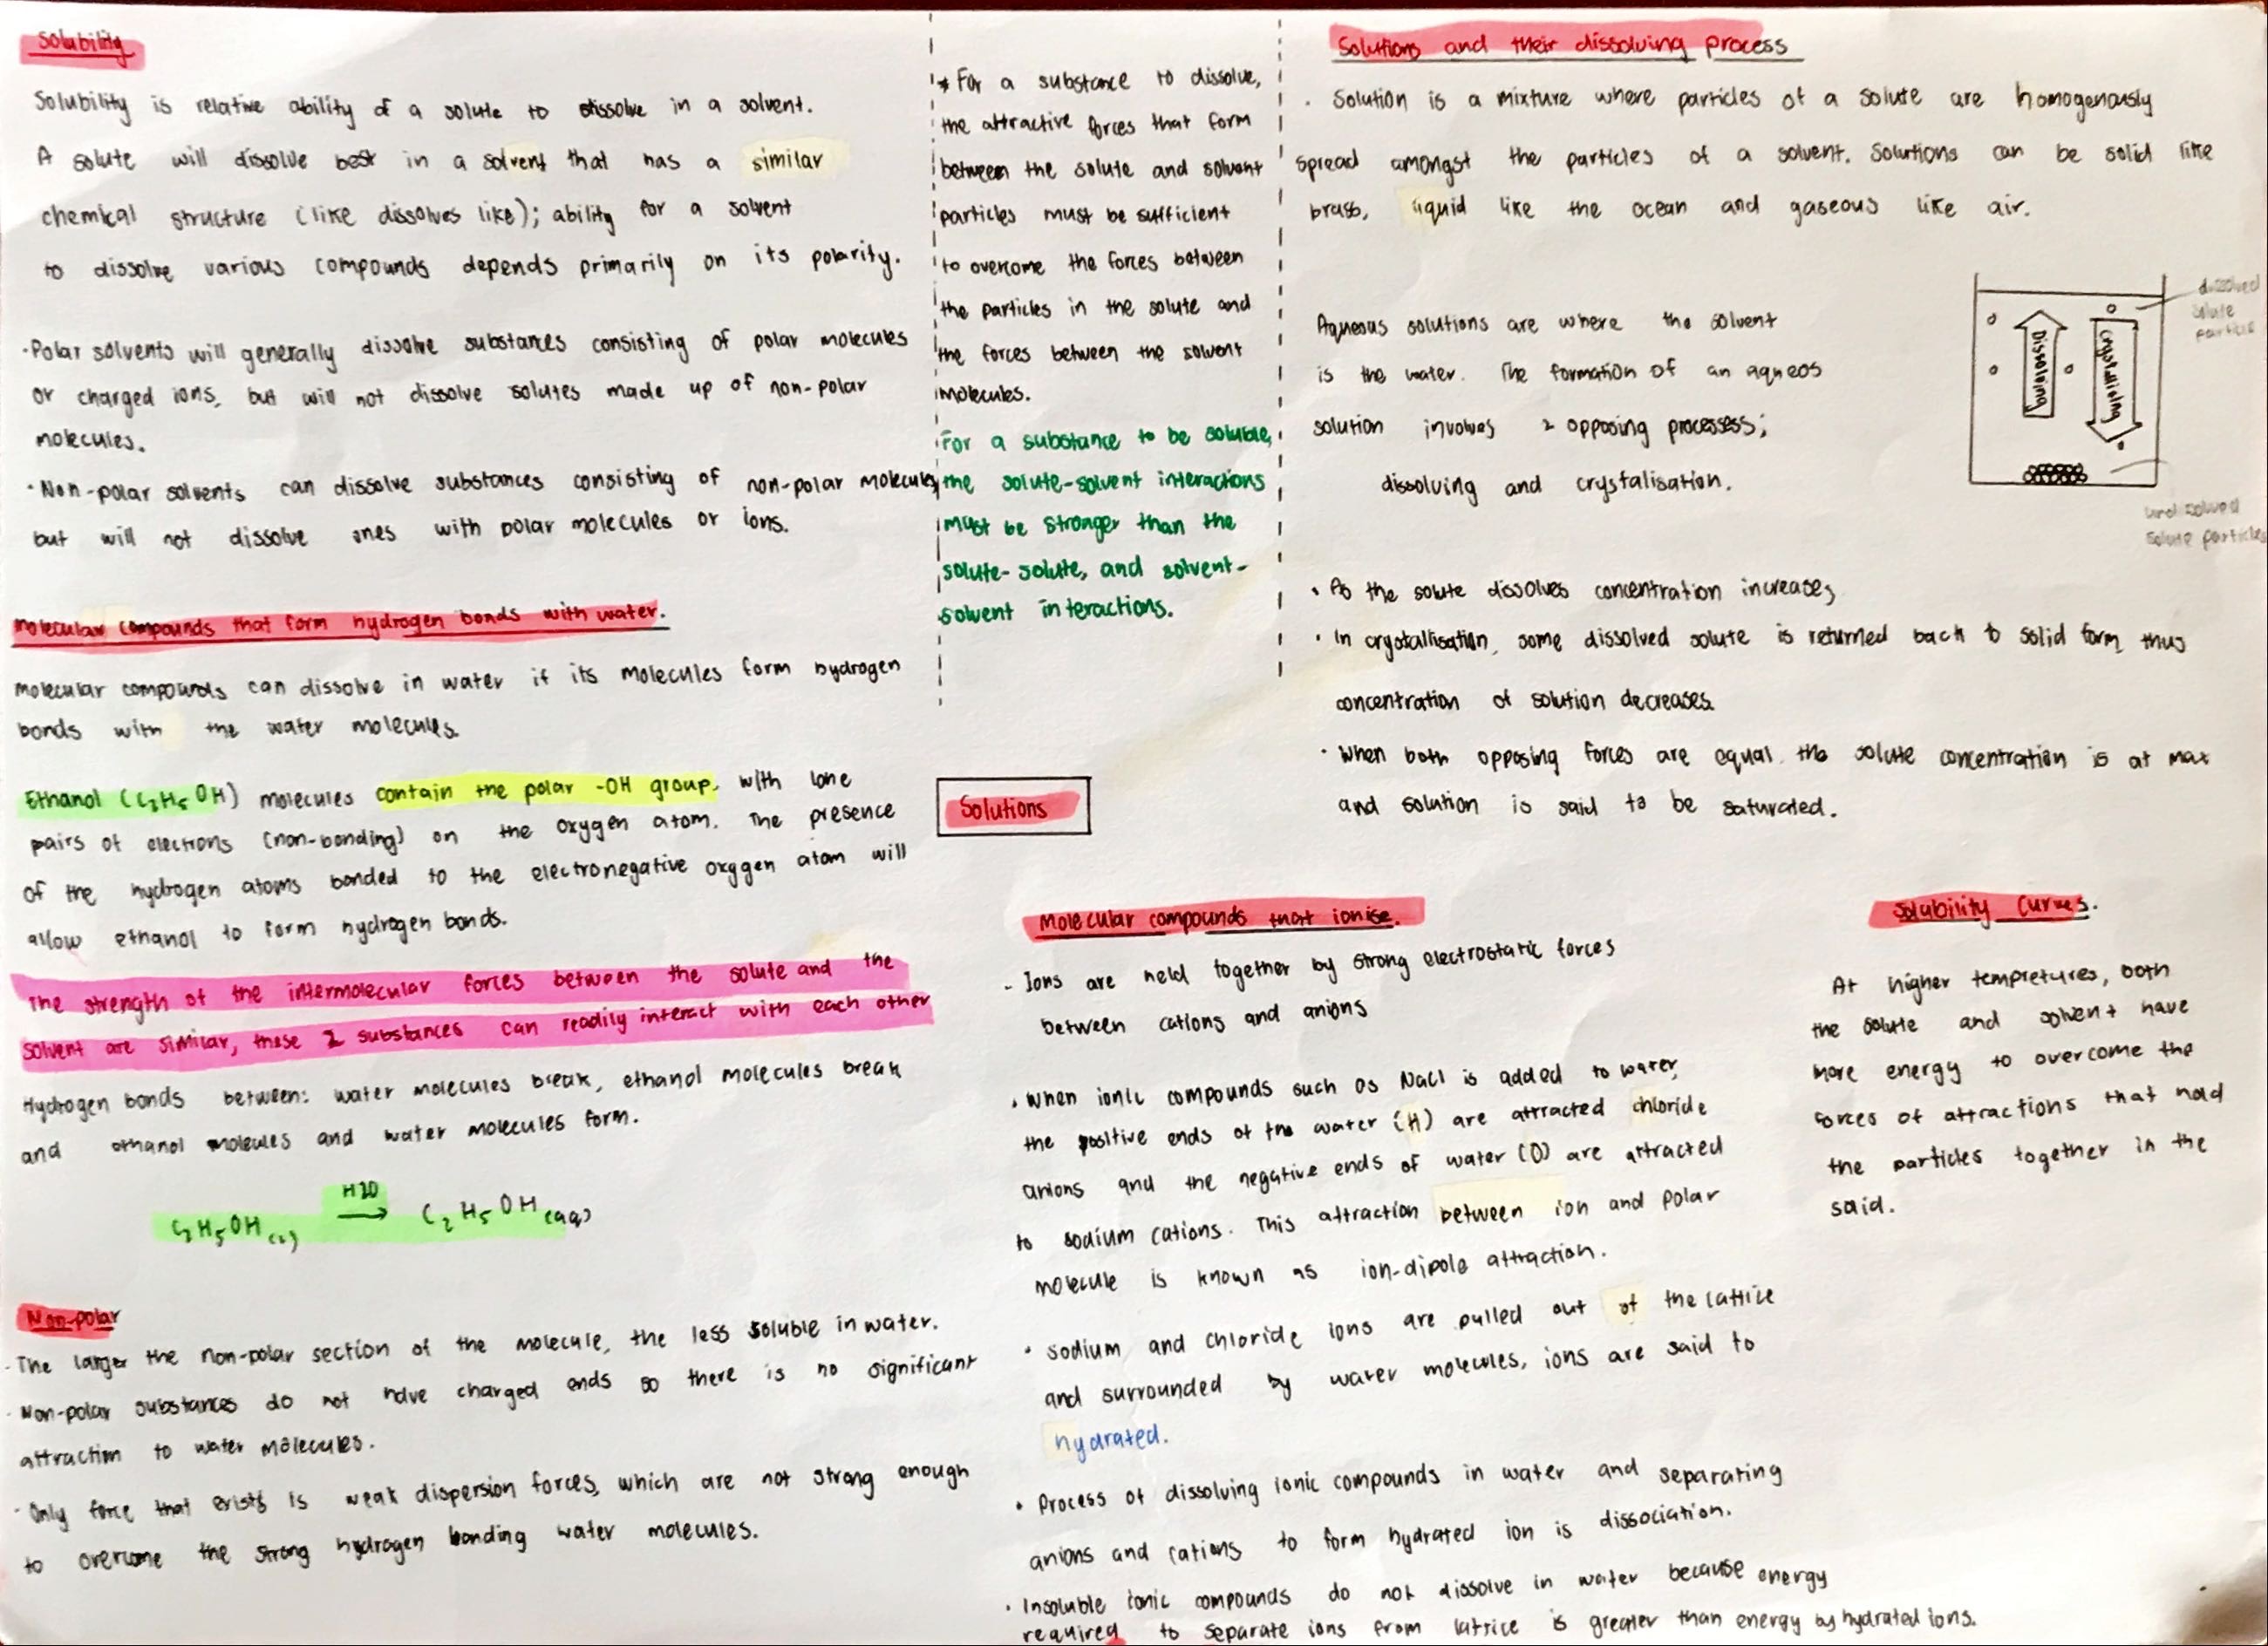 Solubility
Solubility is relative ability of a solute to dissolve in a solvent.
A solute will dissolve best in a solvent that has a similar
chemical structure (like dissolves like); ability for a solvent
to dissolve various compounds depends primarily on its polarity.
· Polar solvents will generally dissolve substances consisting of polar molecules
or charged ions, but will not dissolve solutes made up of non-polar
molecules.
· Non-polar solvents can dissolve substances consisting of non-polar molecules
but will not dissolve ones with polar molecules or ions.
Molecular compounds that form hydrogen bonds with water.
Molecular compounds can dissolve in water if its molecules form hydrogen
bonds with the water molecules.
Ethanol (C2H5OH) molecules contain the polar -OH group, with lone
pairs of electrons (non-bonding) on the oxygen atom. The presence
of the hydrogen atoms bonded to the electronegative oxygen atom will
allow ethanol to form hydrogen bonds.
The strength of the intermolecular forces between the solute and the
solvent are similar, these 2 substances can readily interact with each other
Hydrogen bonds between: water molecules break, ethanol molecules break
and ethanol molecules and water molecules form.
H2O
C2H5OH(l) → C2H5OH(aq)
Non-polar
· The larger the non-polar section of the molecule, the less soluble in water.
· Non-polar substances do not have charged ends so there is no significant
attraction to water molecules.
· Only force that exists is weak dispersion forces, which are not strong enough
to overcome the strong hydrogen bonding water molecules.
* For a substance to dissolve,
the attractive forces that form
between the solute and solvent
particles must be sufficient
to overcome the forces between
the particles in the solute and
the forces between the solvent
molecules.
For a substance to be soluble,
the solute-solvent interactions
must be stronger than the
solute-solute, and solvent-
solvent interactions.
Solutions
Solutions and their dissolving process
· Solution is a mixture where particles of a solute are homogenously
spread amongst the particles of a solvent. Solutions can be solid like
brass, liquid like the ocean and gaseous like air.
Aqueous solutions are where the solvent
is the water. The formation of an aqneos
solution involves 2 opposing processess;
dissolving and crystalisation.
dissolved
solute
particle
Dissolving
Crystallising
undissolved
solute particles
· As the solute dissolves concentration increases
· In crystallisation, some dissolved solute is returned back to solid form, thus
concentration of solution decreases.
· When both opposing forces are equal, the solute concentration is at max
and solution is said to be saturated.
Molecular compounds that ionise.
- Ions are held together by strong electrostatic forces
between cations and anions
· When ionic compounds such as NaCl is added to water,
the positive ends of the water (H) are attracted chloride
anions and the negative ends of water (O) are attracted
to sodium cations. This attraction between ion and polar
molecule is known as ion-dipole attraction.
· Sodium and chloride ions are pulled out of the lattice
and surrounded by water molecules, ions are said to
hydrated.
· Process of dissolving ionic compounds in water and separating
anions and cations to form hydrated ion is dissociation.
· Insoluble ionic compounds do not dissolve in water because energy
required to separate ions from lattice is greater than energy by hydrated ions.
Solubility Curves.
At higher tempretures, both
the solute and solvent have
more energy to overcome the
forces of attractions that hold
the particles together in the
said.